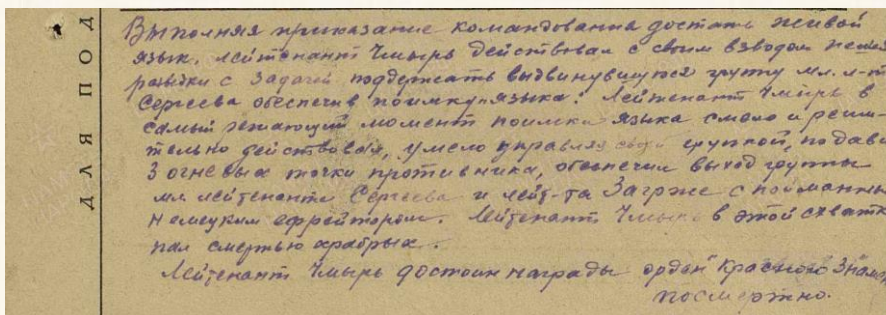 Выполняя приказание командования достать живой
язык. лейтенант Чмырь действовал с своим взводом пешей
разведки с задачей поддержать выдвинувшуюся группу мл. л-та
Сергеева обеспечив поимку языка. Лейтенант Чмырь в
самый решающий момент поимки языка смело и реши-
тельно действовал, умело управляя своей группой, подавил
3 огневых точки противника, обеспечил выход группы
мл лейтенанта Сергеева и лейт-та Загрже с пойманным
немецким ефрейтором. Лейтенант Чмырь в этой схватке
пал смертью храбрых.
Лейтенант Чмырь достоин награды орден "Красного Знамя
посмертно.
ДЛЯ ПОД